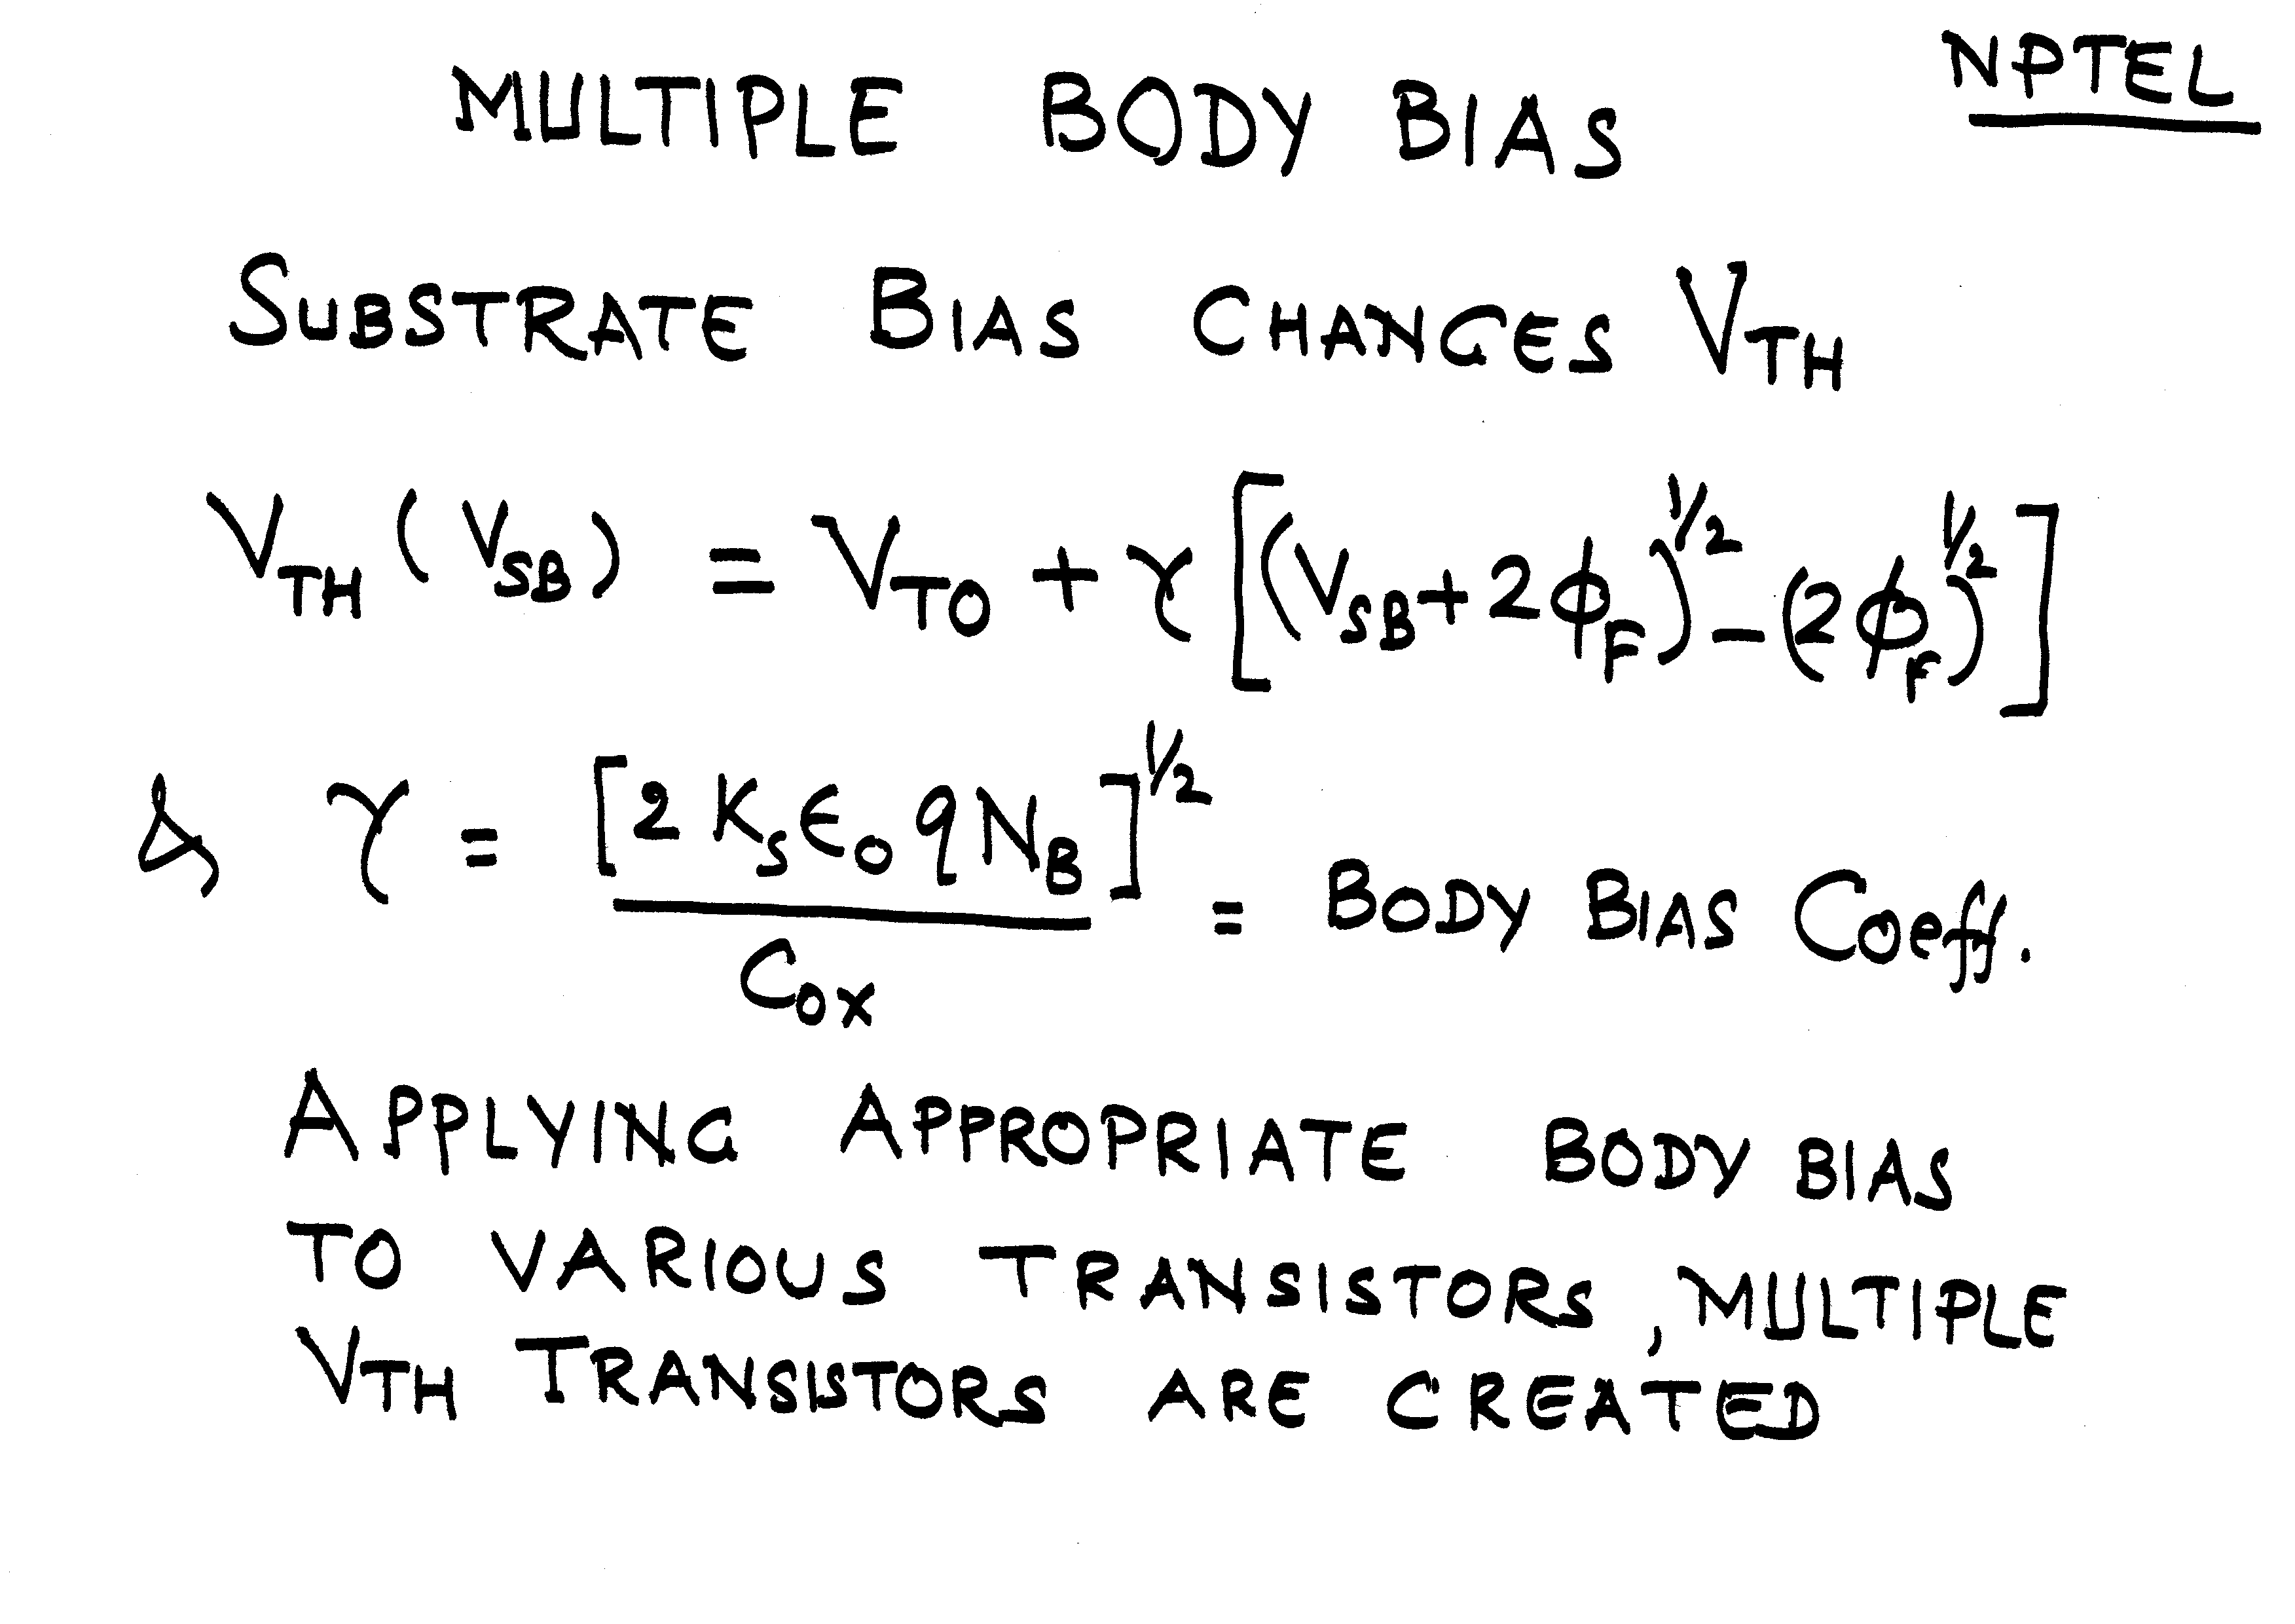 NPTEL
MULTIPLE BODY BIAS
SUBSTRATE BIAS CHANGES VTH
VTH (VSB) = VTO + γ[(VSB+2ϕF)^1/2 - (2ϕF)^1/2]
& γ = [2 Ks ϵo q NB]^1/2 / Cox = BODY BIAS Coeff.
APPLYING APPROPRIATE BODY BIAS
TO VARIOUS TRANSISTORS, MULTIPLE
VTH TRANSISTORS ARE CREATED